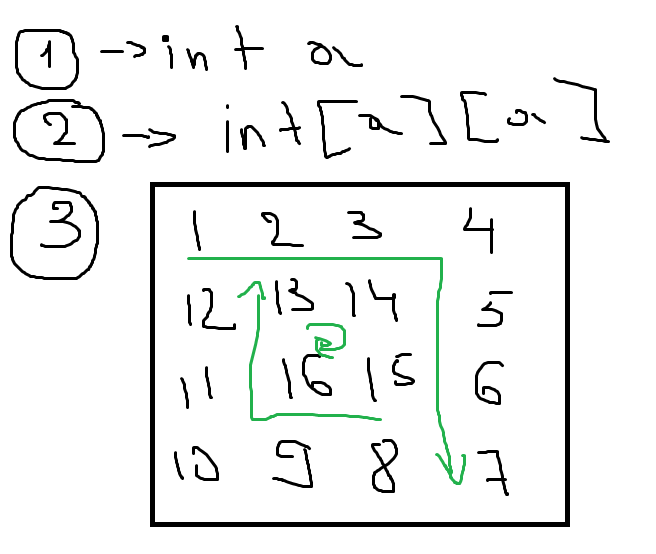 1 -> int a
2 -> int[a][a]
3
1 2 3 4
12 13 14 5
11 16 15 6
10 9 8 7